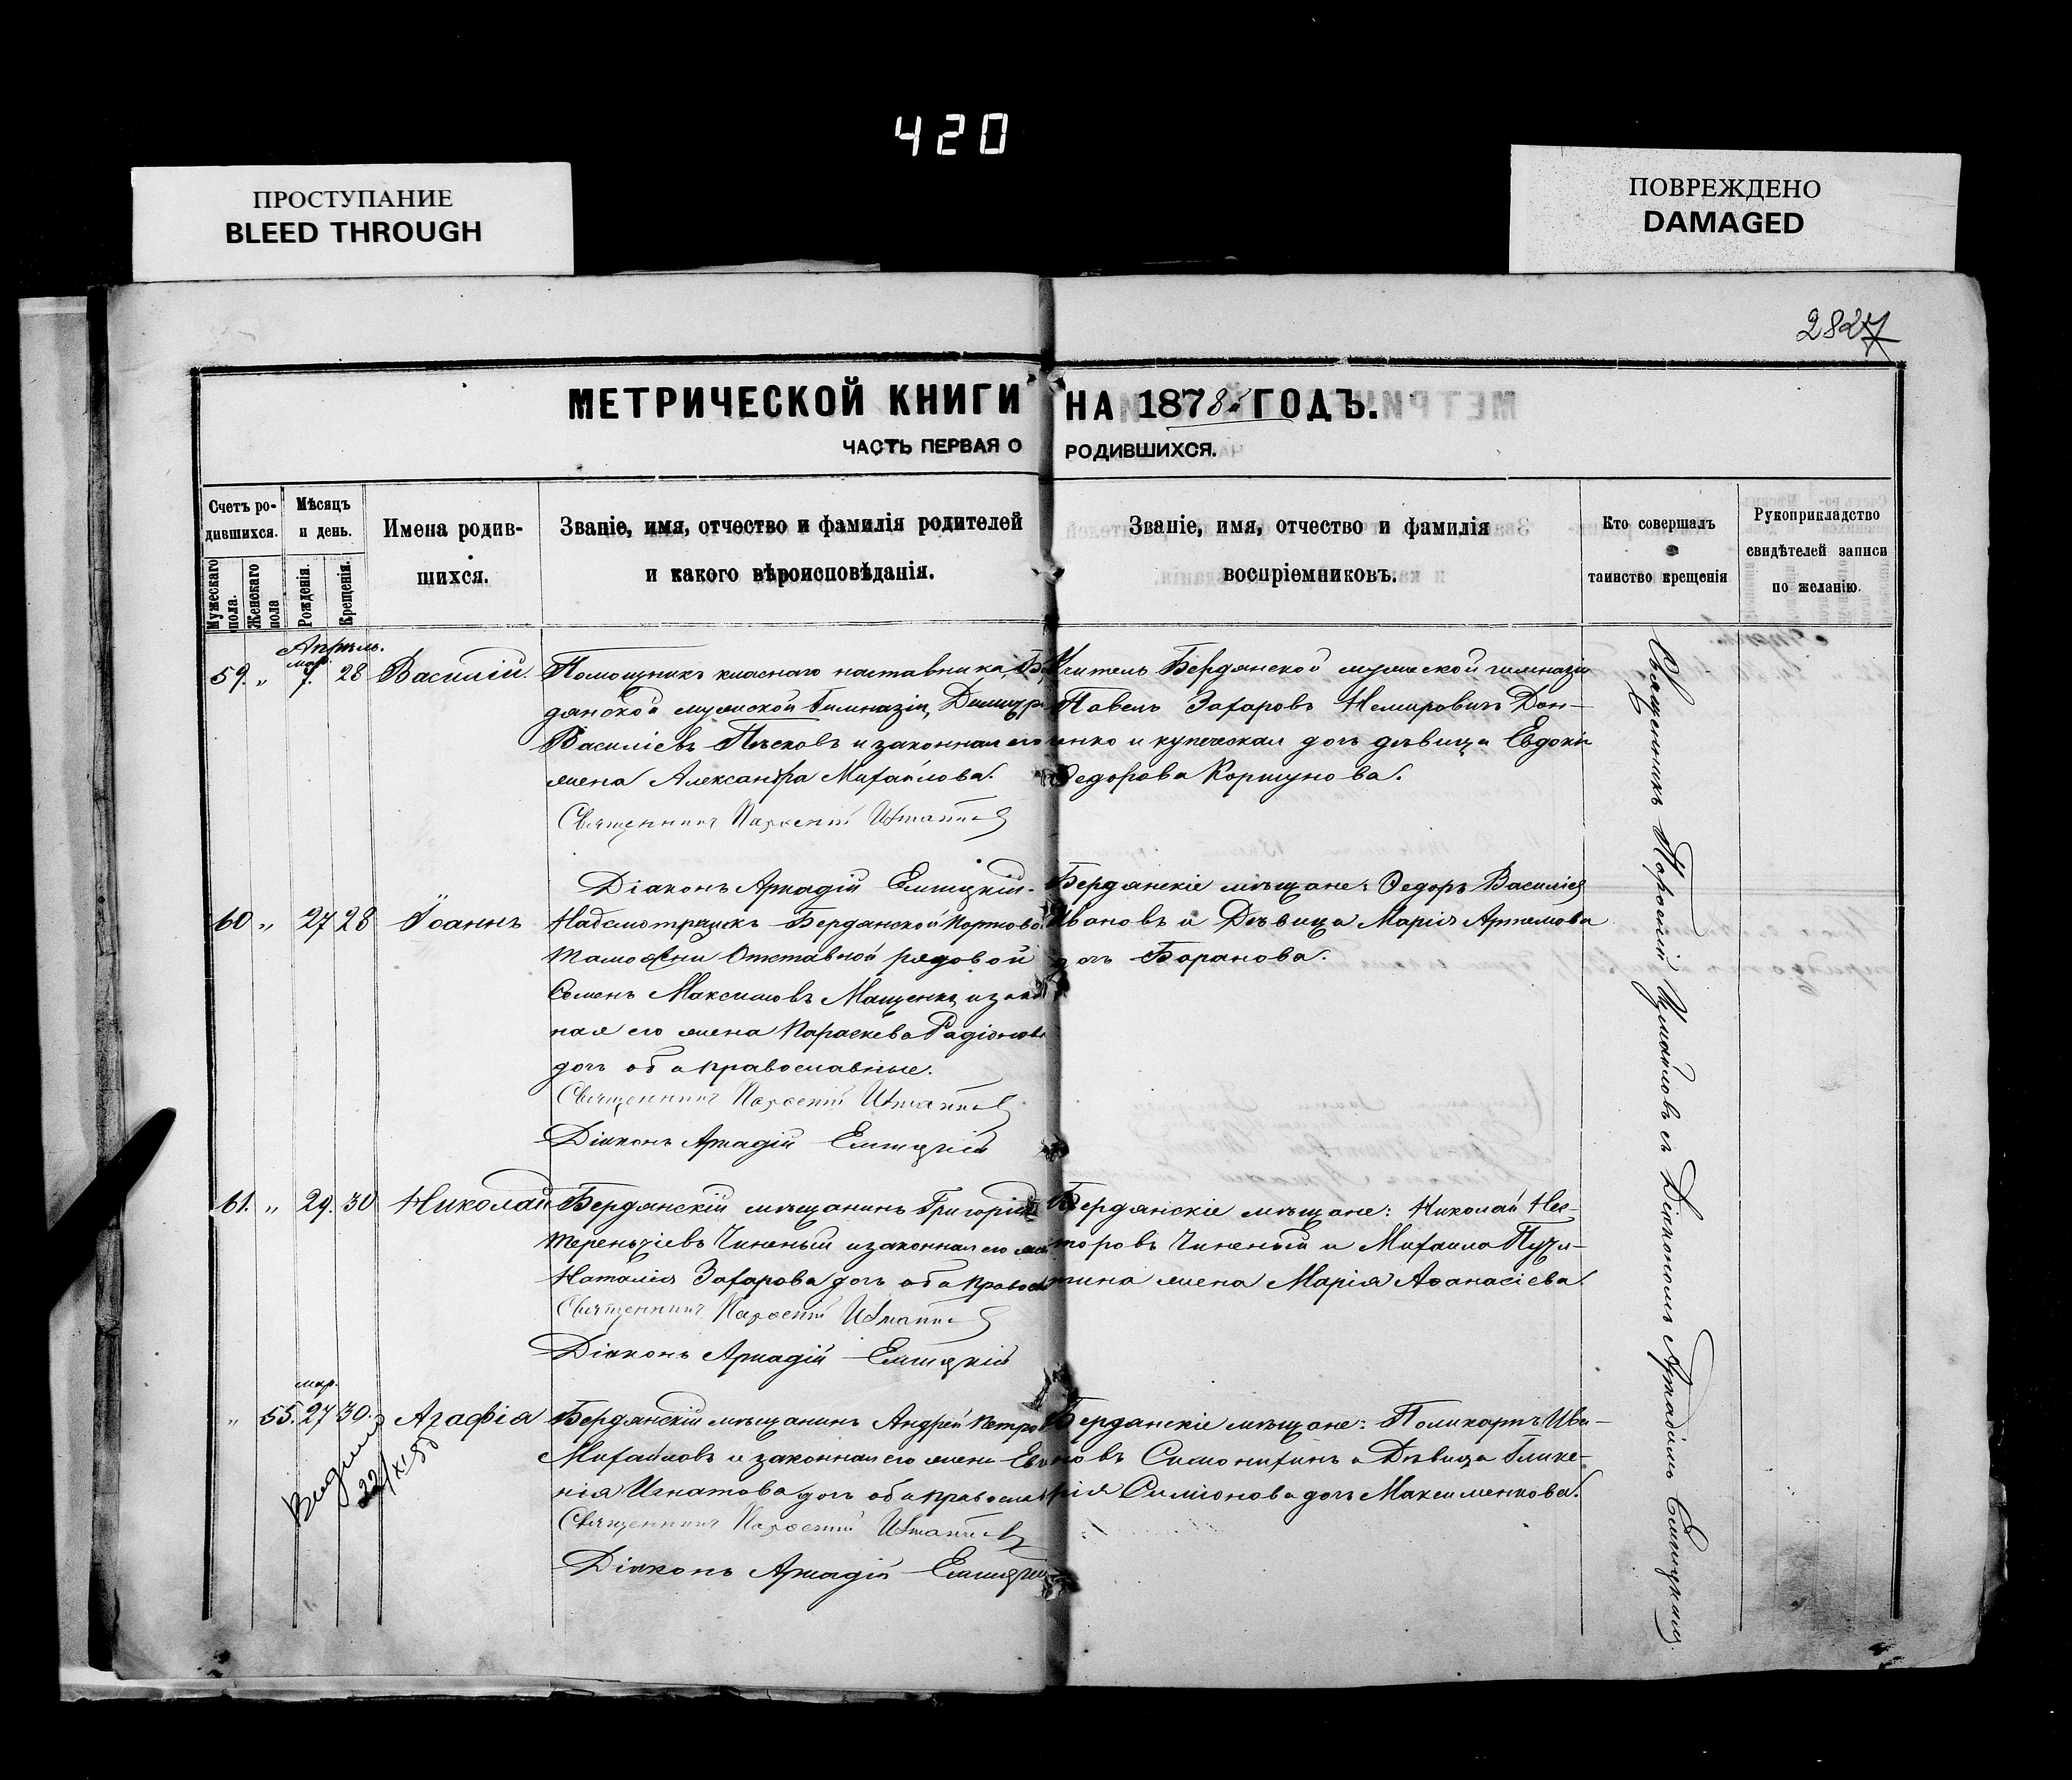 420
ПРОСТУПАНИЕ
BLEED THROUGH
ПОВРЕЖДЕНО
DAMAGED
МЕТРИЧЕСКОЙ КНИГИ НА 1878 ГОДЪ.
ЧАСТЬ ПЕРВАЯ О РОДИВШИХСЯ.
Счетъ ро-
дившихся.
Мужескаго пола.
Женскаго пола
Мѣсяцъ
и день.
Рожденія.
Крещенія.
Имена родив-
шихся.
Званіе, имя, отчество и фамилія родителей
и какого вѣроисповѣданія.
Званіе, имя, отчество и фамилія
воспріемниковъ.
Кто совершалъ
таинство крещенія
Рукоприкладство
свидѣтелей записи
по желанію.
Апрѣль.
мар.
59. " 7. 28 Василій.
Помощникъ класнаго наставника, Бе
дянской мужской Гимназіи, Димитр
Василіевъ Пѣсковъ и законная его
жена Александра Михайлова.
Священникъ Парѳеній
Діаконъ Аркадій
Учитель Бердянской мужеской гимназіи
Павелъ Захаровъ Немировичъ Дан-
ченко и купеческая дочь дѣвица Евдокі
Ѳедорова Коршунова.
60 " 27 28 Іоаннъ
Надсмотрщикъ Бердянской Портово
Таможни Отставной рядовой
Семенъ Максимовъ Мащенко и зако
ная его жена Параскева Радіонова
дочь оба православные.
Священникъ Парѳеній
Діаконъ Аркадій
Бердянскіе мѣщане: Ѳедоръ Василіев
Ивановъ и Дѣвица Марія Артемова
дочь Баранова.
61. " 29. 30 Николай
Бердянскій мѣщанинъ Григорій
Терентіевъ Чиненый и законная его жен
Наталія Захарова дочь оба правос
Священникъ Парѳеній
Діаконъ Аркадій
Бердянскіе мѣщане: Николай Нес-
торовъ Чиненый и Михаила
жена Марія Аѳанасіева.
мар.
" 55. 27 30. Агафія
22/XI
Бердянскій мѣщанинъ Андрей Петров
Михайловъ и законная его жена Евге
нія Игнатова дочь оба православ
Священникъ Парѳеній
Діаконъ Аркадій
Бердянскіе мѣщане: Поликарпъ Ива-
новъ Симонихинъ и Дѣвица Глике-
рія Симіонова дочь Максименкова.
Священникъ Парѳеній Измайловъ съ Діакономъ Аркадіемъ